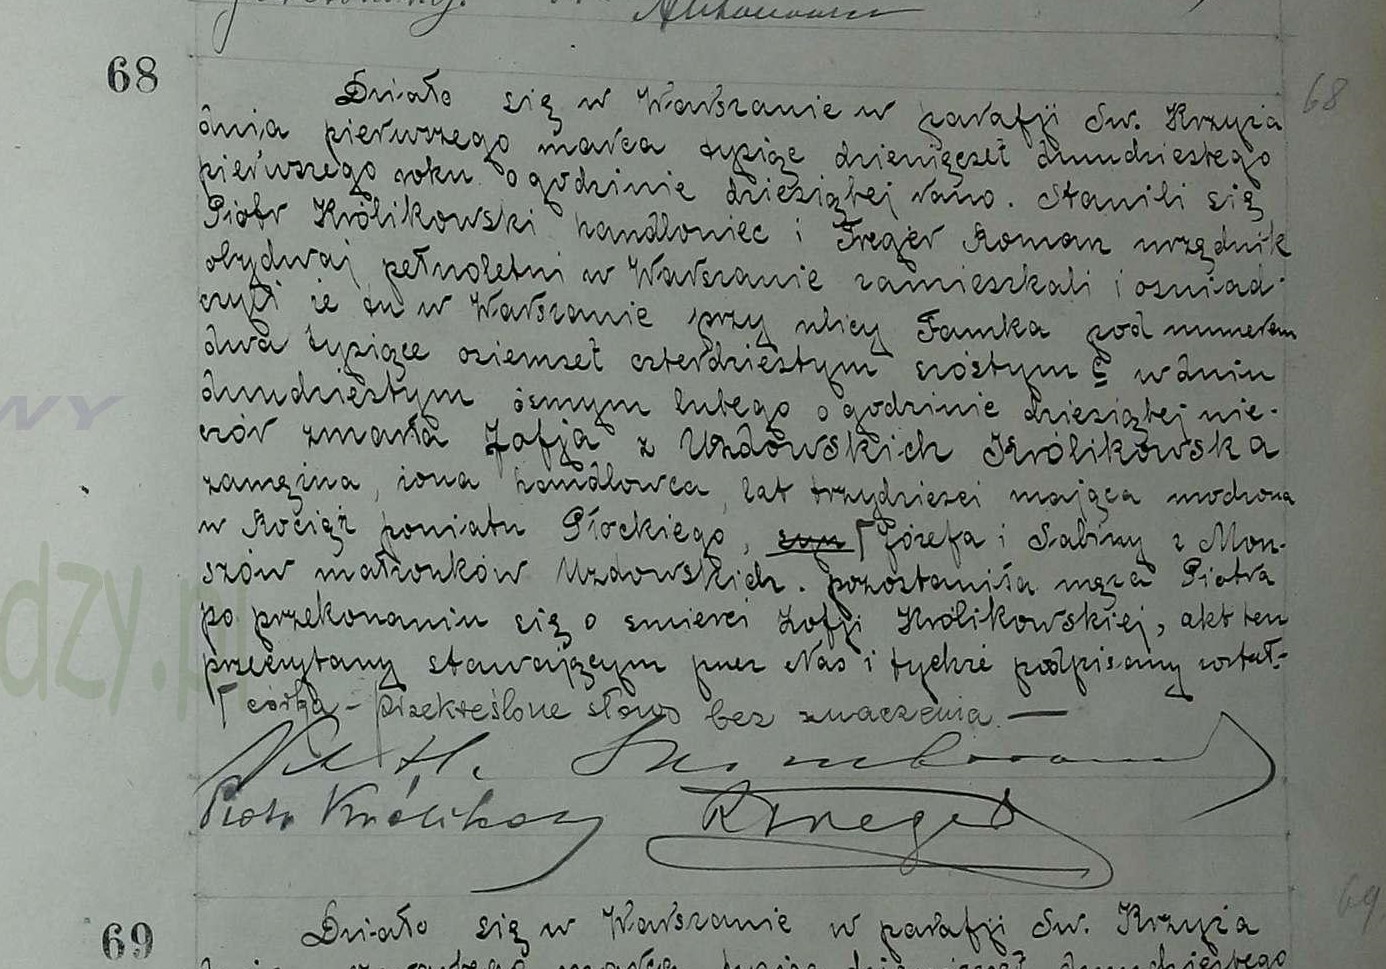 68
68
Działo się w Warszawie w parafji Św. Krzyża
dnia pierwszego marca tysiąc dziewięćset dwudziestego
pierwszego roku o godzinie dziesiątej rano. Stawili się
Piotr Królikowski handlowiec i Treger Roman urzędnik
obydwaj pełnoletni w Warszawie zamieszkali i oświad-
czyli że tu w Warszawie przy ulicy Tamka pod numerem
dwa tysiące ośiemset czterdziestym szóstym w dniu
dwudziestym ósmym lutego o godzinie dziesiątej wie-
czór zmarła Zofja z Uzdowskich Królikowska
zamężna, żona handlowca, lat trzydzieści mająca urodzona
w Raciąż powiatu Płockiego, syn Γ Józefa i Sabiny z Mon-
szów małżonków Uzdowskich. pozostawiła męża Piotra
po przekonaniu się o śmierci Zofji Królikowskiej, akt ten
przeczytany stawającym przez Nas i tychże podpisany został.-
Γ córka - przekreślone słowo bez znaczenia. —
Piotr Królikowski
R Treger
69
69
Działo się w Warszawie w parafji Św. Krzyża